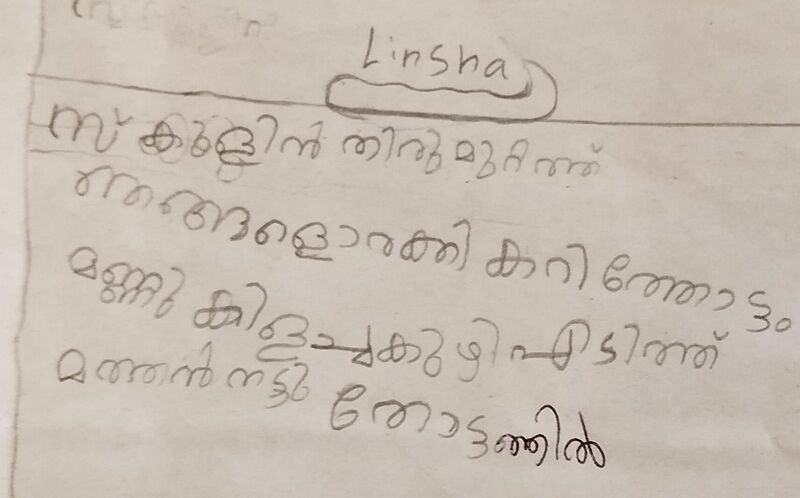 Linsha
സ്കൂളിൻ തിരുമുറ്റത്ത്
ഞങ്ങളൊരക്കി കറിത്തോട്ടം
മണ്ണു കിളച്ചുകുഴിഎടിത്ത്
മത്തൻ നട്ടു തോട്ടത്തിൽ